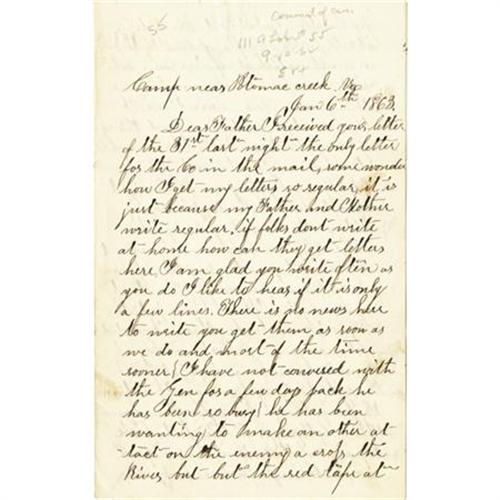 55
Comment of cam
111 A Lot # 55
Camp near Potomac creek Va
Jan 6th 1863.
Dear Father I received your letter
of the 31st last night the only letter
for the Co in the mail, some wonder
how I get my letters so regular, it is
just because my Father and Mother
write regular, if folks dont write
at home how can they get letters
here I am glad you write often as
you do I like to hear if it is only
a few lines. There is no news here
to write you get them as soon as
we do and most of the time
sooner { I have not conversed with
the Gen for a few days pack he
has been so busy } he has been
wanting to make an other at
tact on the enemy a cross the
River but but the red tape at